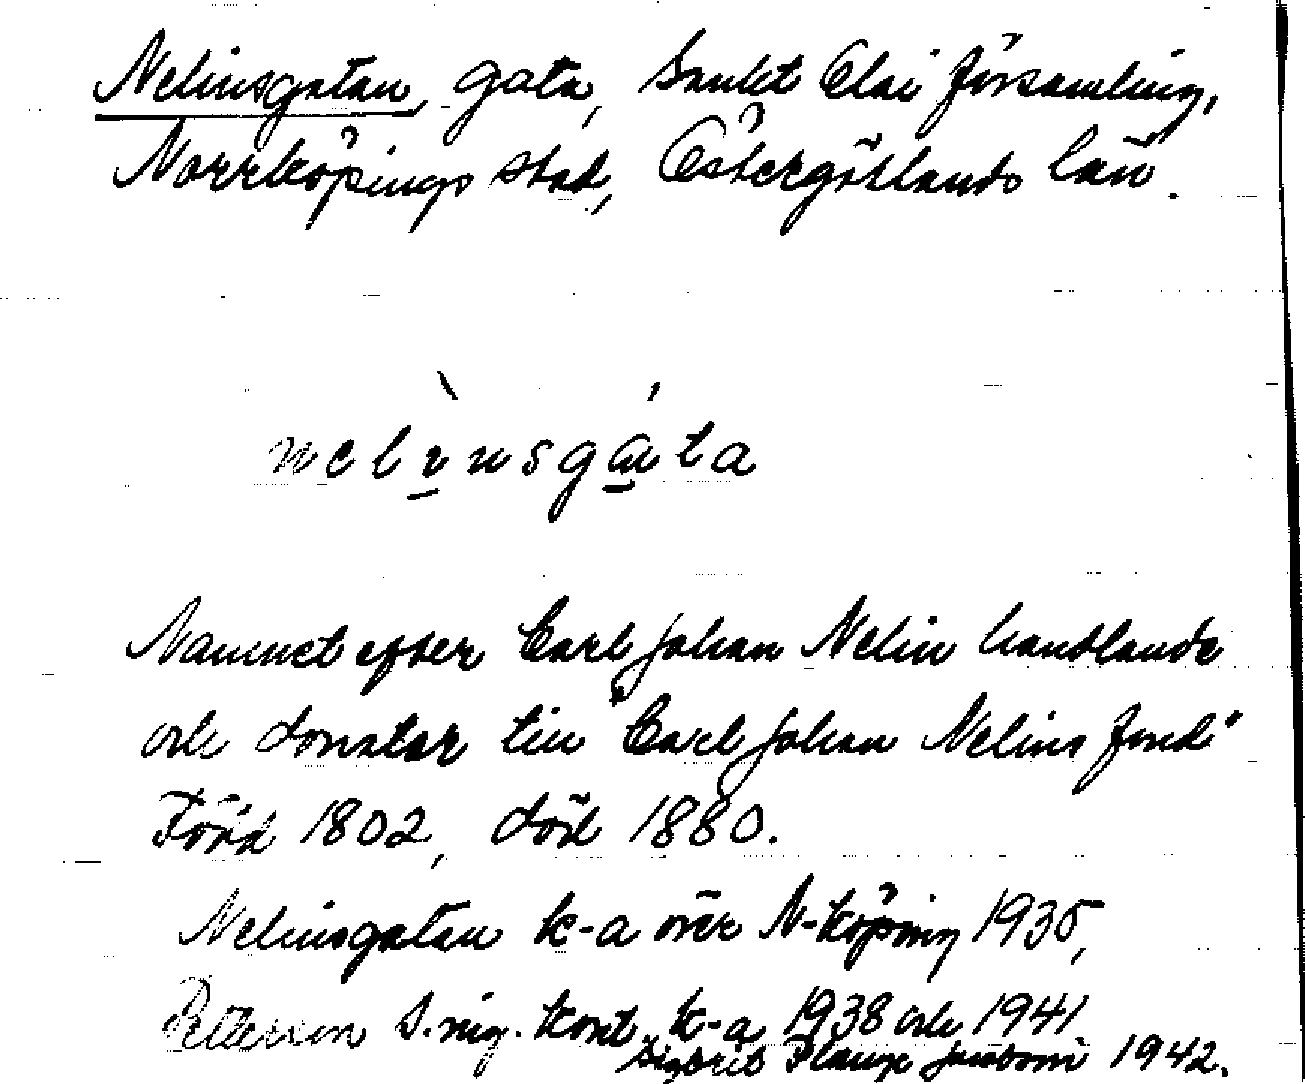 Nelinsgatan, gata, Sankt Olai församling,
Norrköpings stad, Östergötlands län.
nelinsgata
Namnet efter Carl Johan Nelin handlande
och donator till "Carl Johan Nelins fond"
Född 1802, död 1880.
Nelinsgatan k-a över N-köping 1935,
Petterson S. kart k-a 1938 och 1941
Sigbrit Plænge Jacobson 1942.